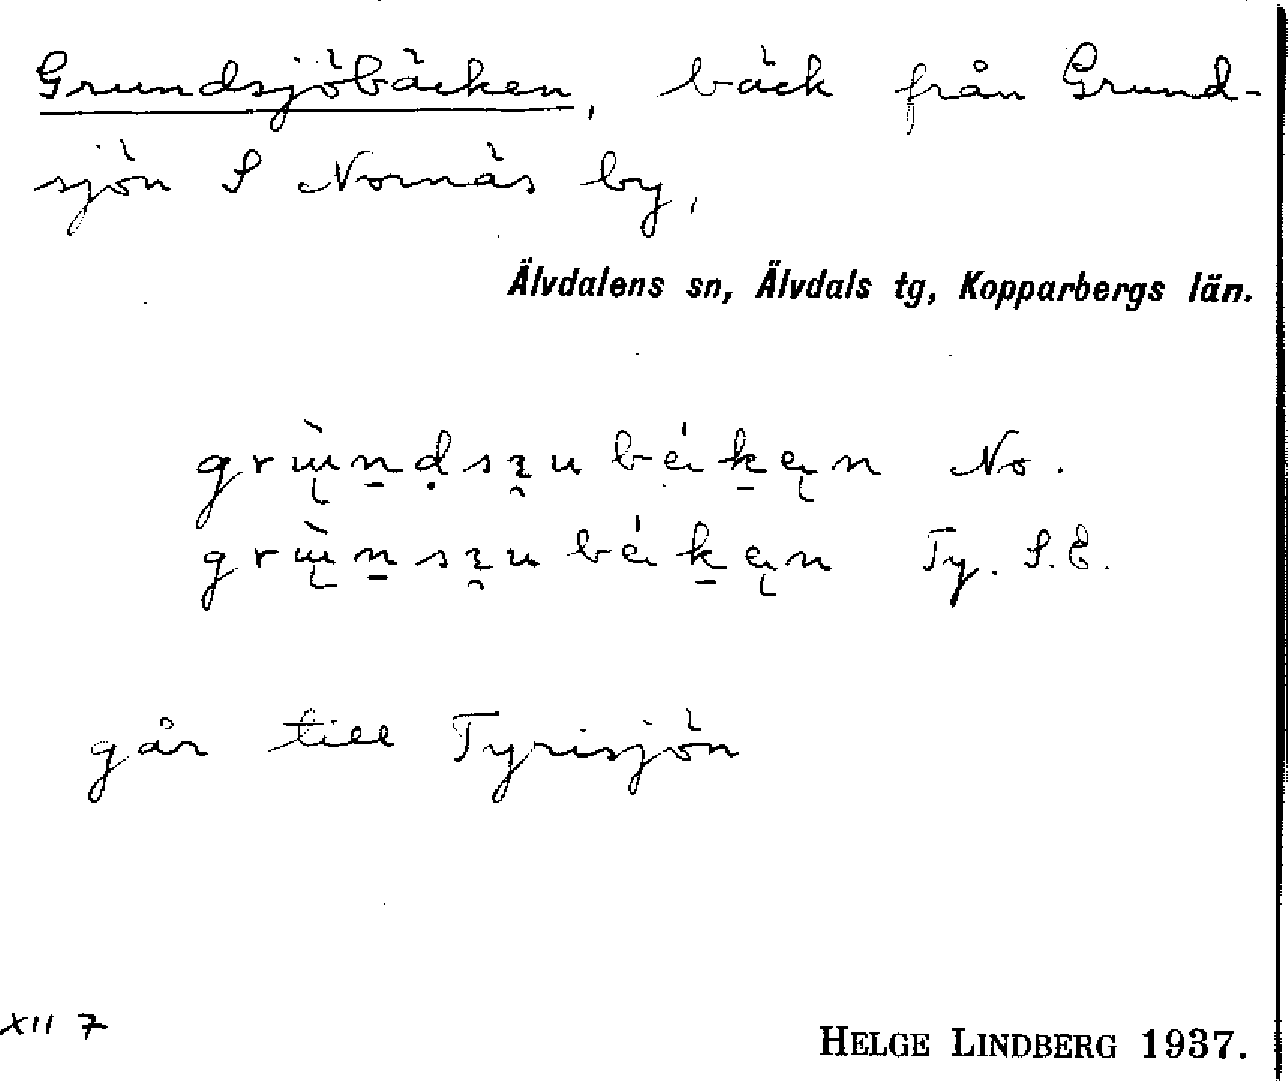 Grundsjöbäcken, bäck från Grund-
sjön S Nornäs by,
Älvdalens sn, Älvdals tg, Kopparbergs län.
No.
Ty. S.E.
går till Tyrisjön
XII 7
HELGE LINDBERG 1937.